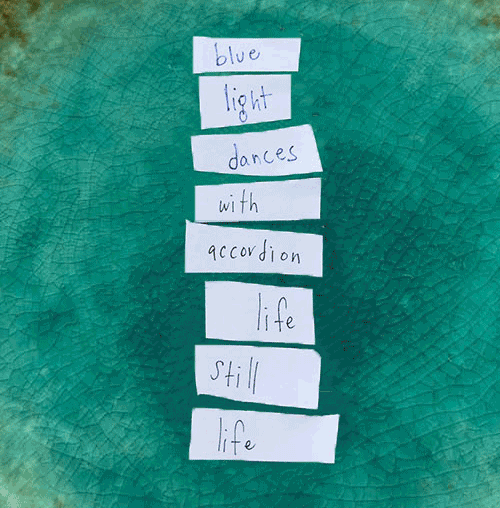 blue
light
dances
with
accordion
life
still
life